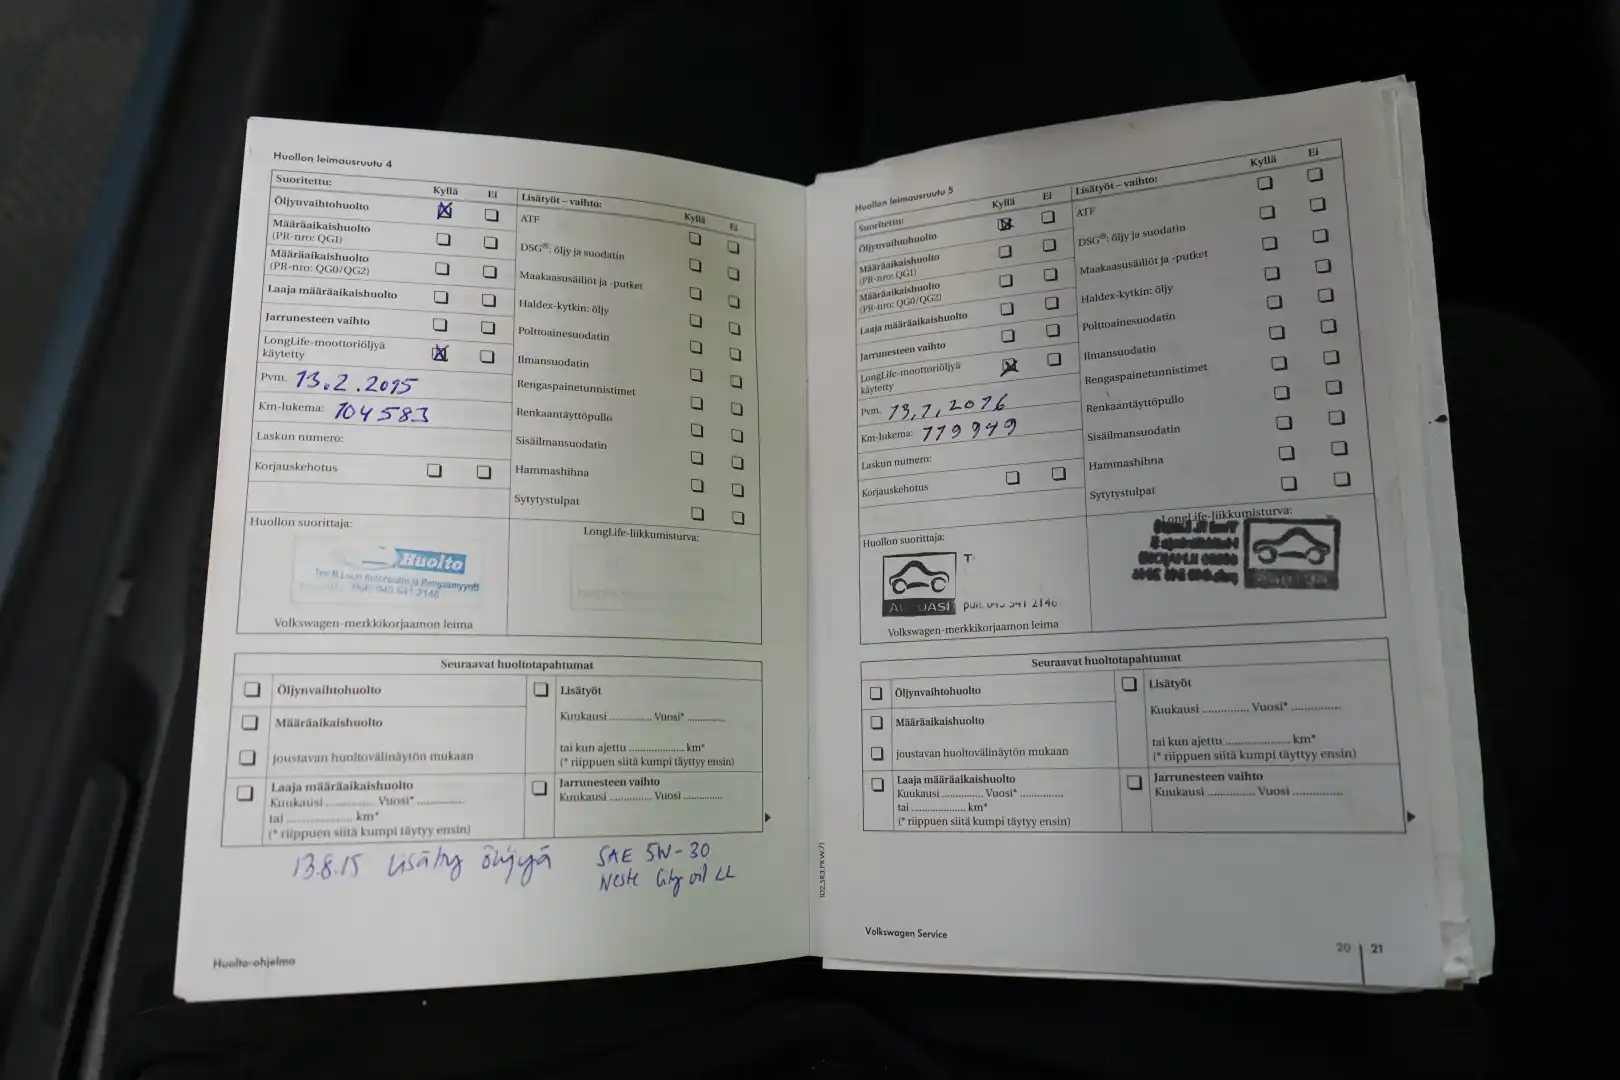 Huollon leimausruutu 4
Suoritettu: Kyllä Ei
Öljynvaihtohuolto
Määräaikaishuolto
(PR-nro: QG1)
Määräaikaishuolto
(PR-nro: QG0/QG2)
Laaja määräaikaishuolto
Jarrunesteen vaihto
LongLife-moottoriöljyä
käytetty
Pvm. 13.2.2015
Km-lukema: 104583
Laskun numero:
Korjauskehotus
Lisätyöt – vaihto: Kyllä Ei
ATF
DSG®: öljy ja suodatin
Maakaasusäiliöt ja -putket
Haldex-kytkin: öljy
Polttoainesuodatin
Ilmansuodatin
Rengaspainetunnistimet
Renkaantäyttöpullo
Sisäilmansuodatin
Hammashihna
Sytytystulpat
Huollon suorittaja:
Huolto
Autohuolto ja Rengasmyynti
040 541 2146
Volkswagen-merkkikorjaamon leima
LongLife-liikkumisturva:
Seuraavat huoltotapahtumat
Öljynvaihtohuolto
Määräaikaishuolto
joustavan huoltovälinäytön mukaan
Laaja määräaikaishuolto
Kuukausi .............. Vuosi* ..............
tai .................... km*
(* riippuen siitä kumpi täytyy ensin)
Lisätyöt
Kuukausi .............. Vuosi* ..............
tai kun ajettu .................... km*
(* riippuen siitä kumpi täytyy ensin)
Jarrunesteen vaihto
Kuukausi .............. Vuosi ..............
13.8.15 Lisätty öljyä SAE 5W-30
Neste City oil LL
Huolto-ohjelma
Huollon leimausruutu 5
Suoritettu: Kyllä Ei
Öljynvaihtohuolto
Määräaikaishuolto
(PR-nro: QG1)
Määräaikaishuolto
(PR-nro: QG0/QG2)
Laaja määräaikaishuolto
Jarrunesteen vaihto
LongLife-moottoriöljyä
käytetty
Pvm. 13,1,2016
Km-lukema: 119949
Laskun numero:
Korjauskehotus
Lisätyöt – vaihto: Kyllä Ei
ATF
DSG®: öljy ja suodatin
Maakaasusäiliöt ja -putket
Haldex-kytkin: öljy
Polttoainesuodatin
Ilmansuodatin
Rengaspainetunnistimet
Renkaantäyttöpullo
Sisäilmansuodatin
Hammashihna
Sytytystulpat
Huollon suorittaja:
Volkswagen-merkkikorjaamon leima
LongLife-liikkumisturva:
Seuraavat huoltotapahtumat
Öljynvaihtohuolto
Määräaikaishuolto
joustavan huoltovälinäytön mukaan
Laaja määräaikaishuolto
Kuukausi .............. Vuosi* ..............
tai .................... km*
(* riippuen siitä kumpi täytyy ensin)
Lisätyöt
Kuukausi .............. Vuosi* ..............
tai kun ajettu .................... km*
(* riippuen siitä kumpi täytyy ensin)
Jarrunesteen vaihto
Kuukausi .............. Vuosi ..............
102.5R3.PKW.71
Volkswagen Service
20 21